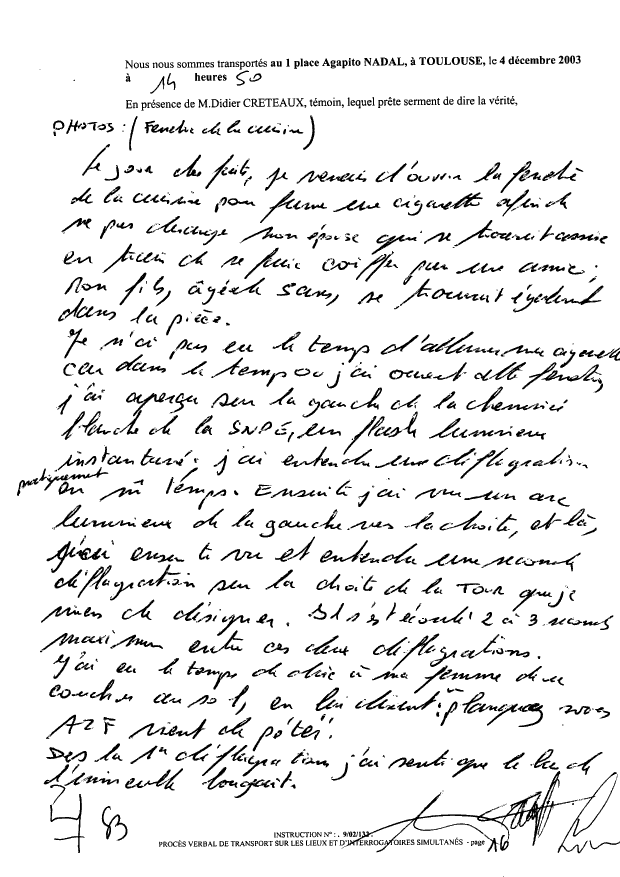 Nous nous sommes transportés au 1 place Agapito NADAL, à TOULOUSE, le 4 décembre 2003
à 14 heures 50
En présence de M.Didier CRETEAUX, témoin, lequel prête serment de dire la vérité,
PHOTOS : (Fenêtre de la cuisine)
Le jour des faits, je venais d'ouvrir la fenêtre
de la cuisine pour fumer une cigarette afin de
ne pas déranger mon épouse qui se trouvait assise
en train de se faire coiffer par une amie,
mon fils, âgé de 5 ans, se trouvait également
dans la pièce.
Je n'ai pas eu le temps d'allumer ma cigarette
car dans le temps où j'ai ouvert cette fenêtre,
j'ai aperçu sur la gauche de la cheminée
blanche de la SNPE, un flash lumineux
instantané. j'ai entendu une déflagration
pratiquement en m̂ temps. Ensuite j'ai vu un arc
lumineux de la gauche vers la droite, et là,
j'ai ensuite vu et entendu une seconde
déflagration sur la droite de la Tour que je
viens de désigner. Il s'est écoulé 2 à 3 secondes
maximum entre ces deux déflagrations.
J'ai eu le temps de dire à ma femme de se
coucher au sol, en lui disant : "planquez vous
AZF vient de péter.
Dès la 1re déflagration j'ai senti que le bas de
l'immeuble bougeait.
83
INSTRUCTION N° : . 9/02/132 .
PROCÈS VERBAL DE TRANSPORT SUR LES LIEUX ET D'INTERROGATOIRES SIMULTANÉS - page 16